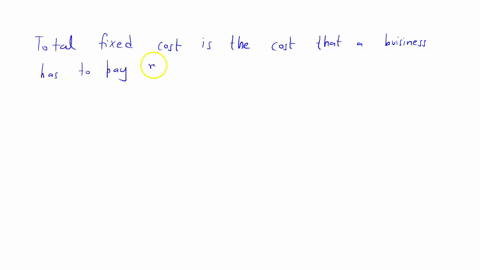 Total fixed cost is the cost that a buisiness
has to pay r